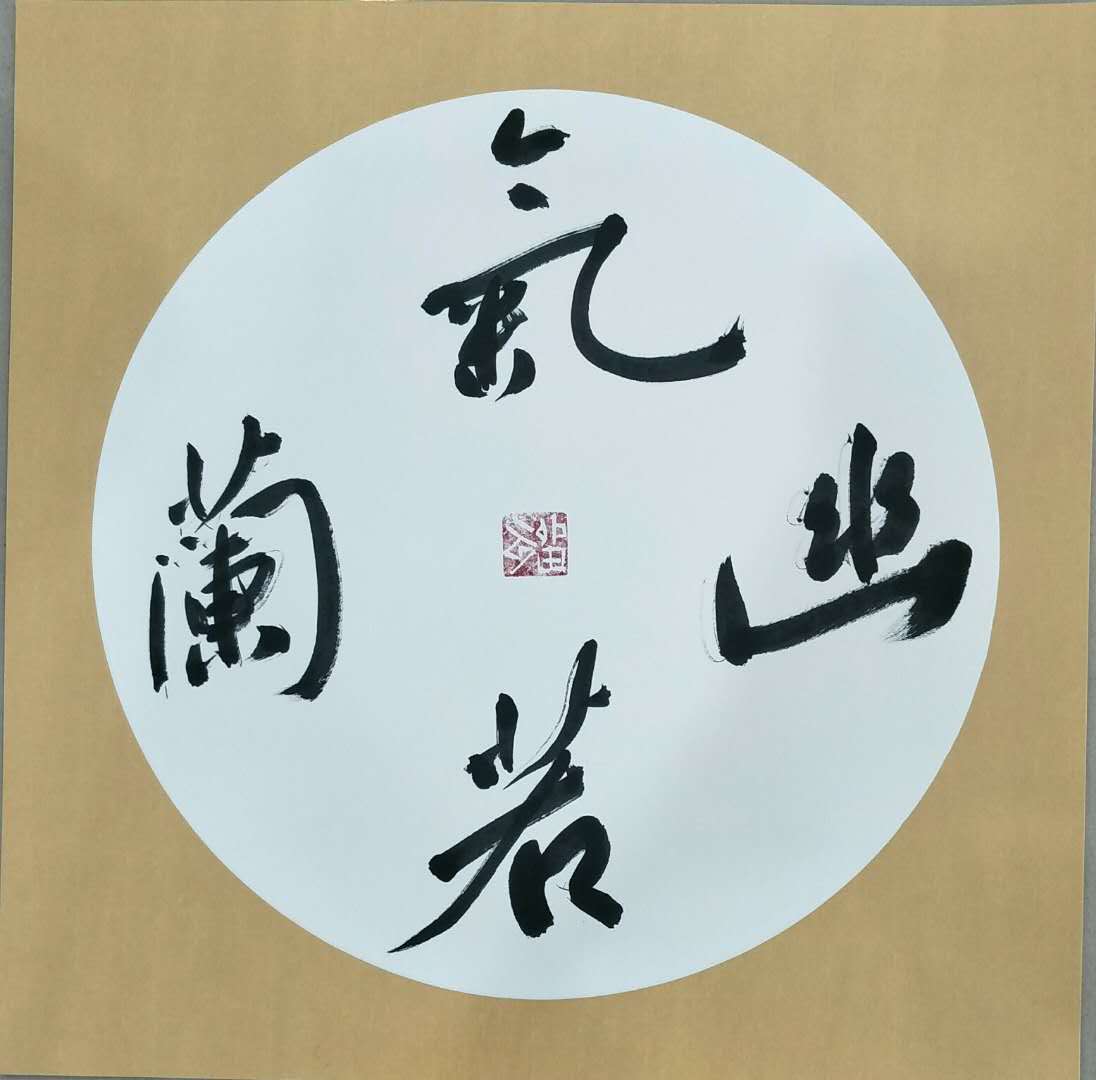 氣
幽
若
蘭